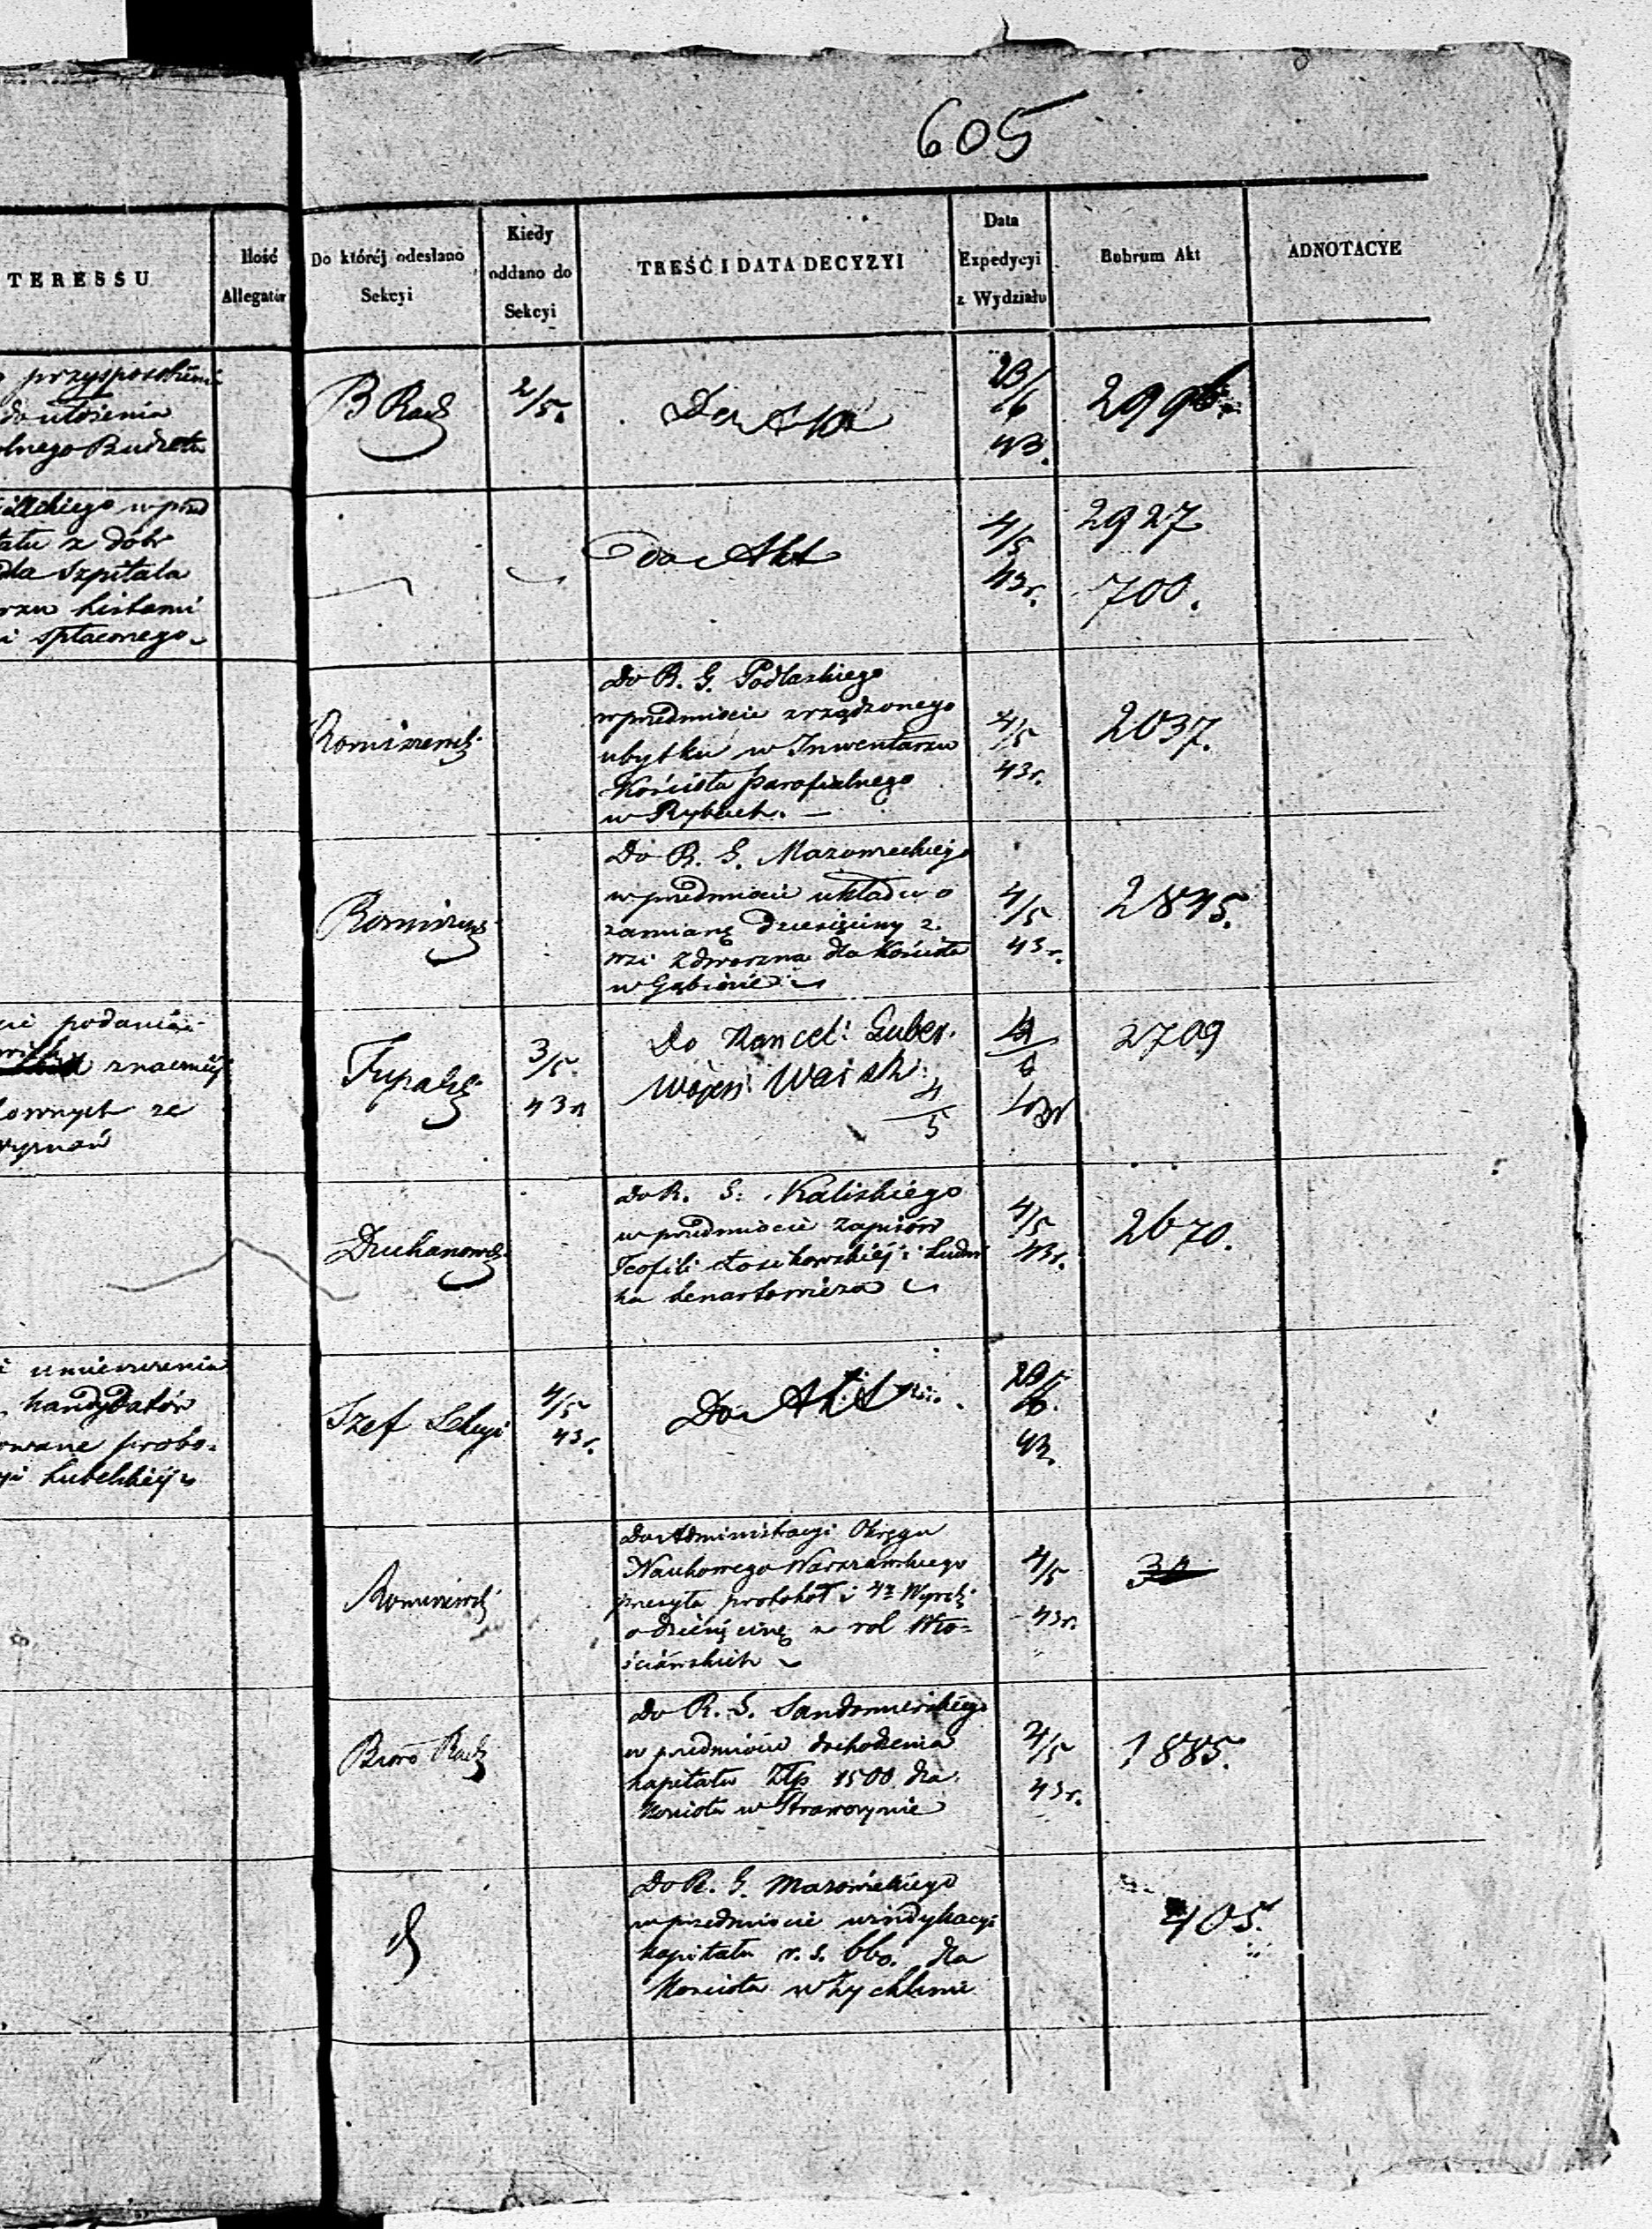 605
TERESSU
Ilość
Allegatów
Do któréj odesłano
Sekcyi
Kiedy
oddano do
Sekcyi
TREŚĆ I DATA DECYZYI
Data
Expedycyi
z Wydziału
Rubrum Akt
ADNOTACYE
przysposobienia
do ułożenia
olnego Budżetu
B Rach
2/5.
Do Akt
23/6
43.
w przed
tału z dobr
dla Szpitala
rzu listami
i spłaconego
do Akt
4/5
43r.
2927
700.
Do R. G. Podlaskiego
w przedmiocie zrządzonego
ubytku w Inwentarzu
Kościoła parafialnego
w Rybach. —
4/5
43r.
2037.
Do R. G. Mazowieckiego
w przedmiocie układu o
zamianę dziesięciny z
wsi Zdworzna dla Kościoła
w Gąbinie
4/5
43r.
2845.
podania
znaczniej
ze
3/5.
43r
Do Kancel: Guber.
Wojen: Warsz:
4
5
2709
Do R. G. Kaliskiego
w przedmiocie zapisów
Teofili Łosikowskiéj i Ludwi
ka Lenartowicza
4/5
43r.
2670.
i umieszczenia
kandydatów
owane probo-
yi Lubelskiéj
Szef Sekcyi
4/5
43r.
Do Akt
43.
Do Administracyi Okręgu
Naukowego Warszawskiego
przesyła protokół i
o dziesięcinę z rol Wło-
ściańskich
4/5
43r.
Biuro Rach
Do R. G. Sandomierskiego
w przedmiocie dochodzenia
kapitału Złp 1500 dla
Kościoła w
4/5
43r.
1885.
Do R. G. Mazowieckiego
w przedmiocie windykacyi
kapitału r. s. 660. dla
Kościoła w Żychlinie
405.